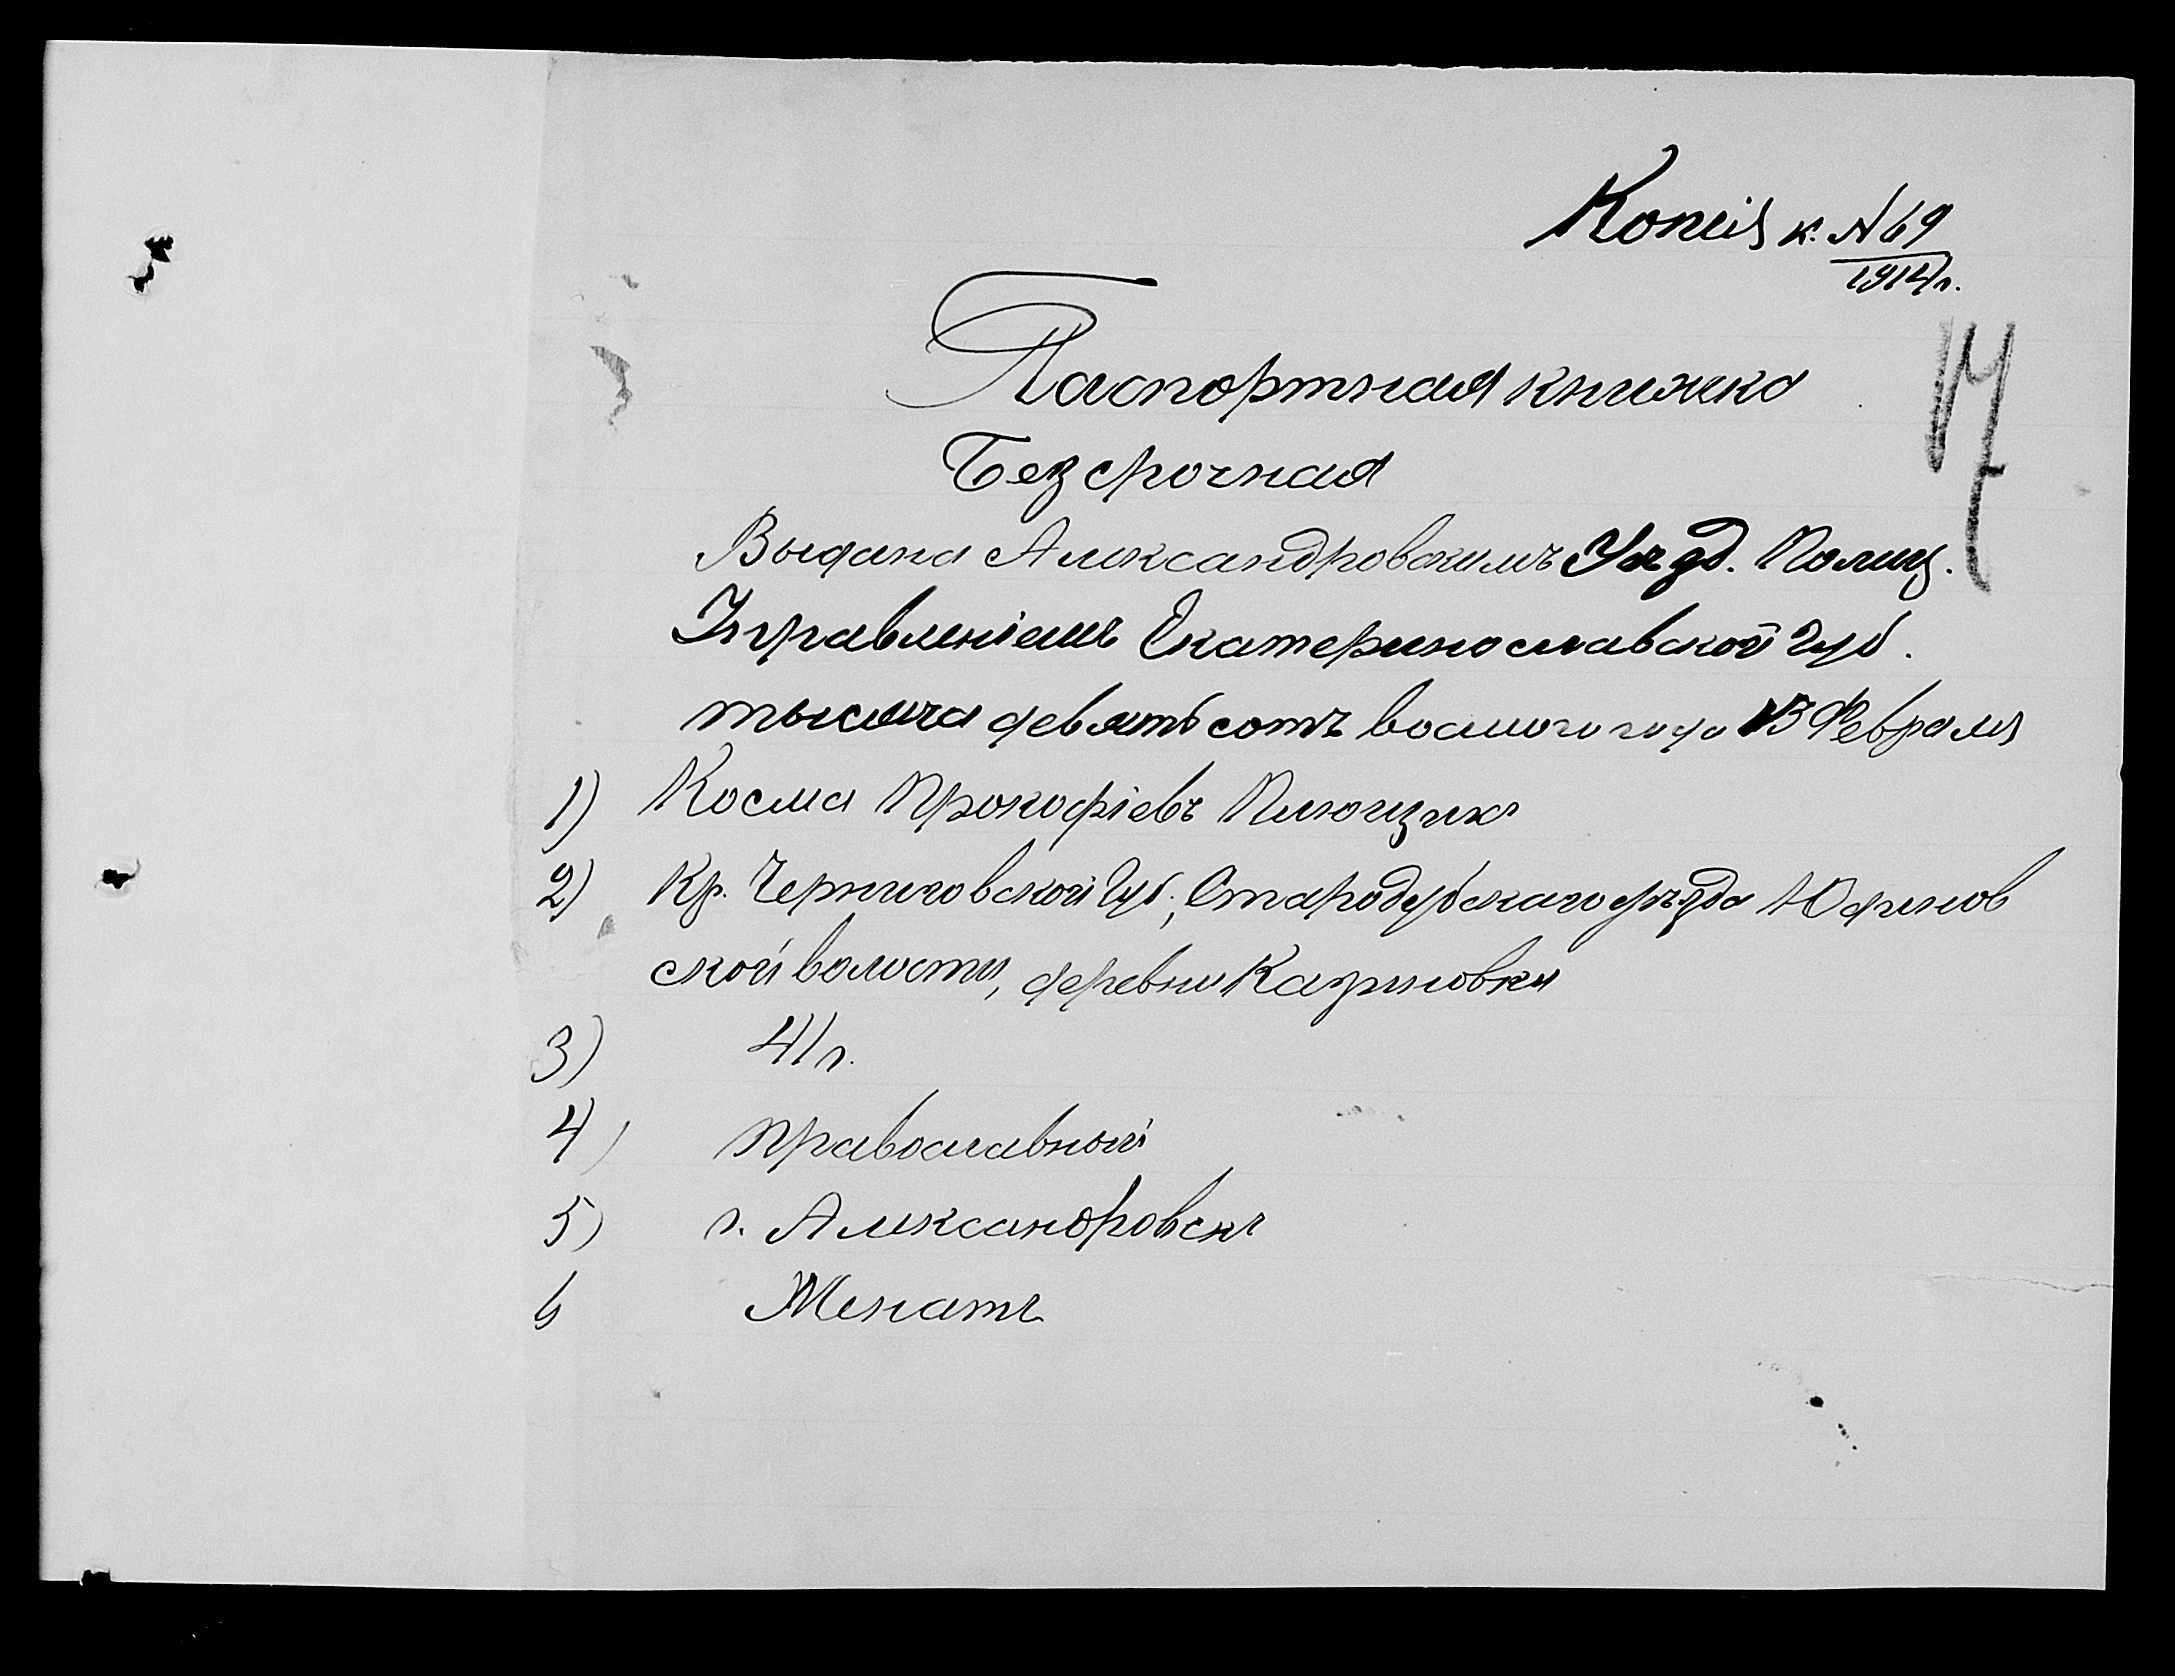 Копія к. №69
1914 г.
17
Паспортная книжка
Безсрочная
Выдана Александровскимъ Уѣзд. Полиц.
Управленіемъ Екатеринославской губ.
тысяча девятьсотъ восьмого года 13 Февраля
1) Косма Прокофіевъ
2) Кр. Черниговской Губ., Стародубскаго уѣзда Юдинов
ской волости, деревни Казиновки
3) 41 г.
4) православный
5) г. Александровскъ
6 Женатъ